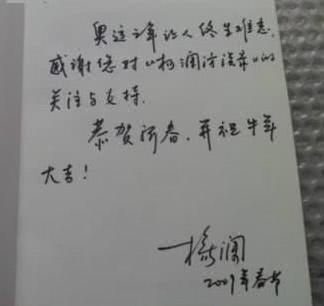 奥运之年让人终生难忘.
感谢您对《杨澜访谈录》的
关注与支持.
恭贺新春,并祝牛年
大吉!
杨澜
2009年春节